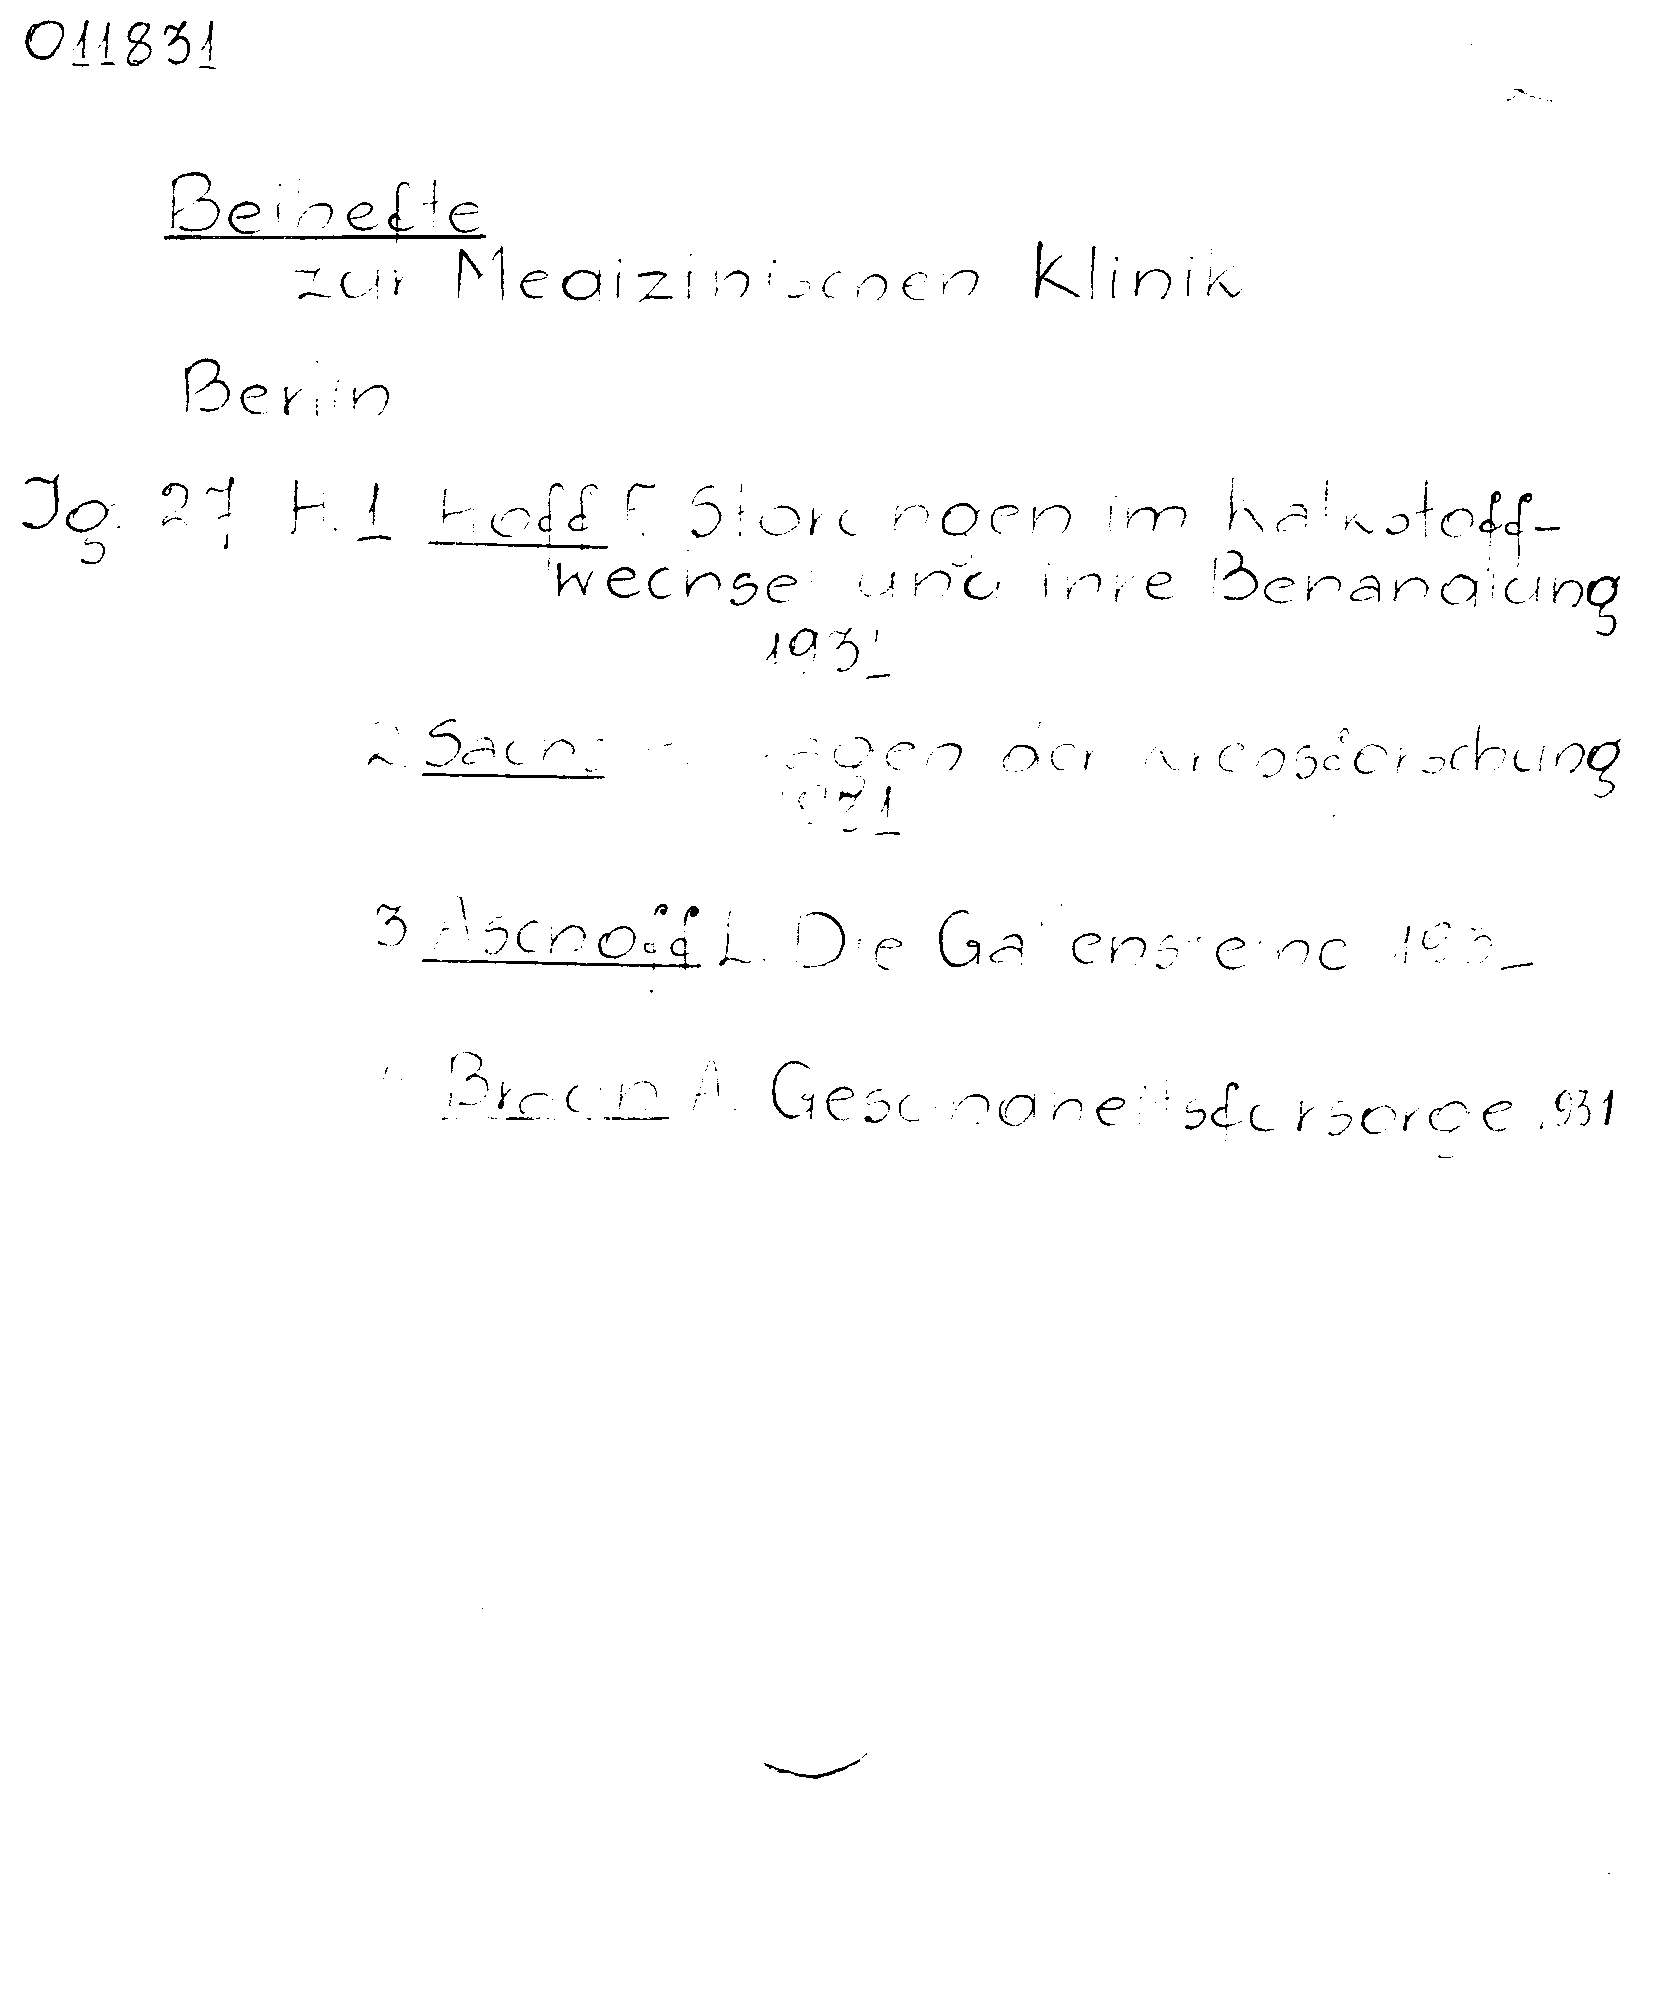 011831
Beihefte
zur Medizinischen Klinik
Berlin
Jg. 27, H. 1 Hoff F. Störungen im Kalkstoff-
wechsel und ihre Behandlung
1931
2. Sachs Fragen der Krebsforschung
1931
3 Aschoff L. Die Gallensteine 1931
Braun A. Gesundheitsfürsorge 1931